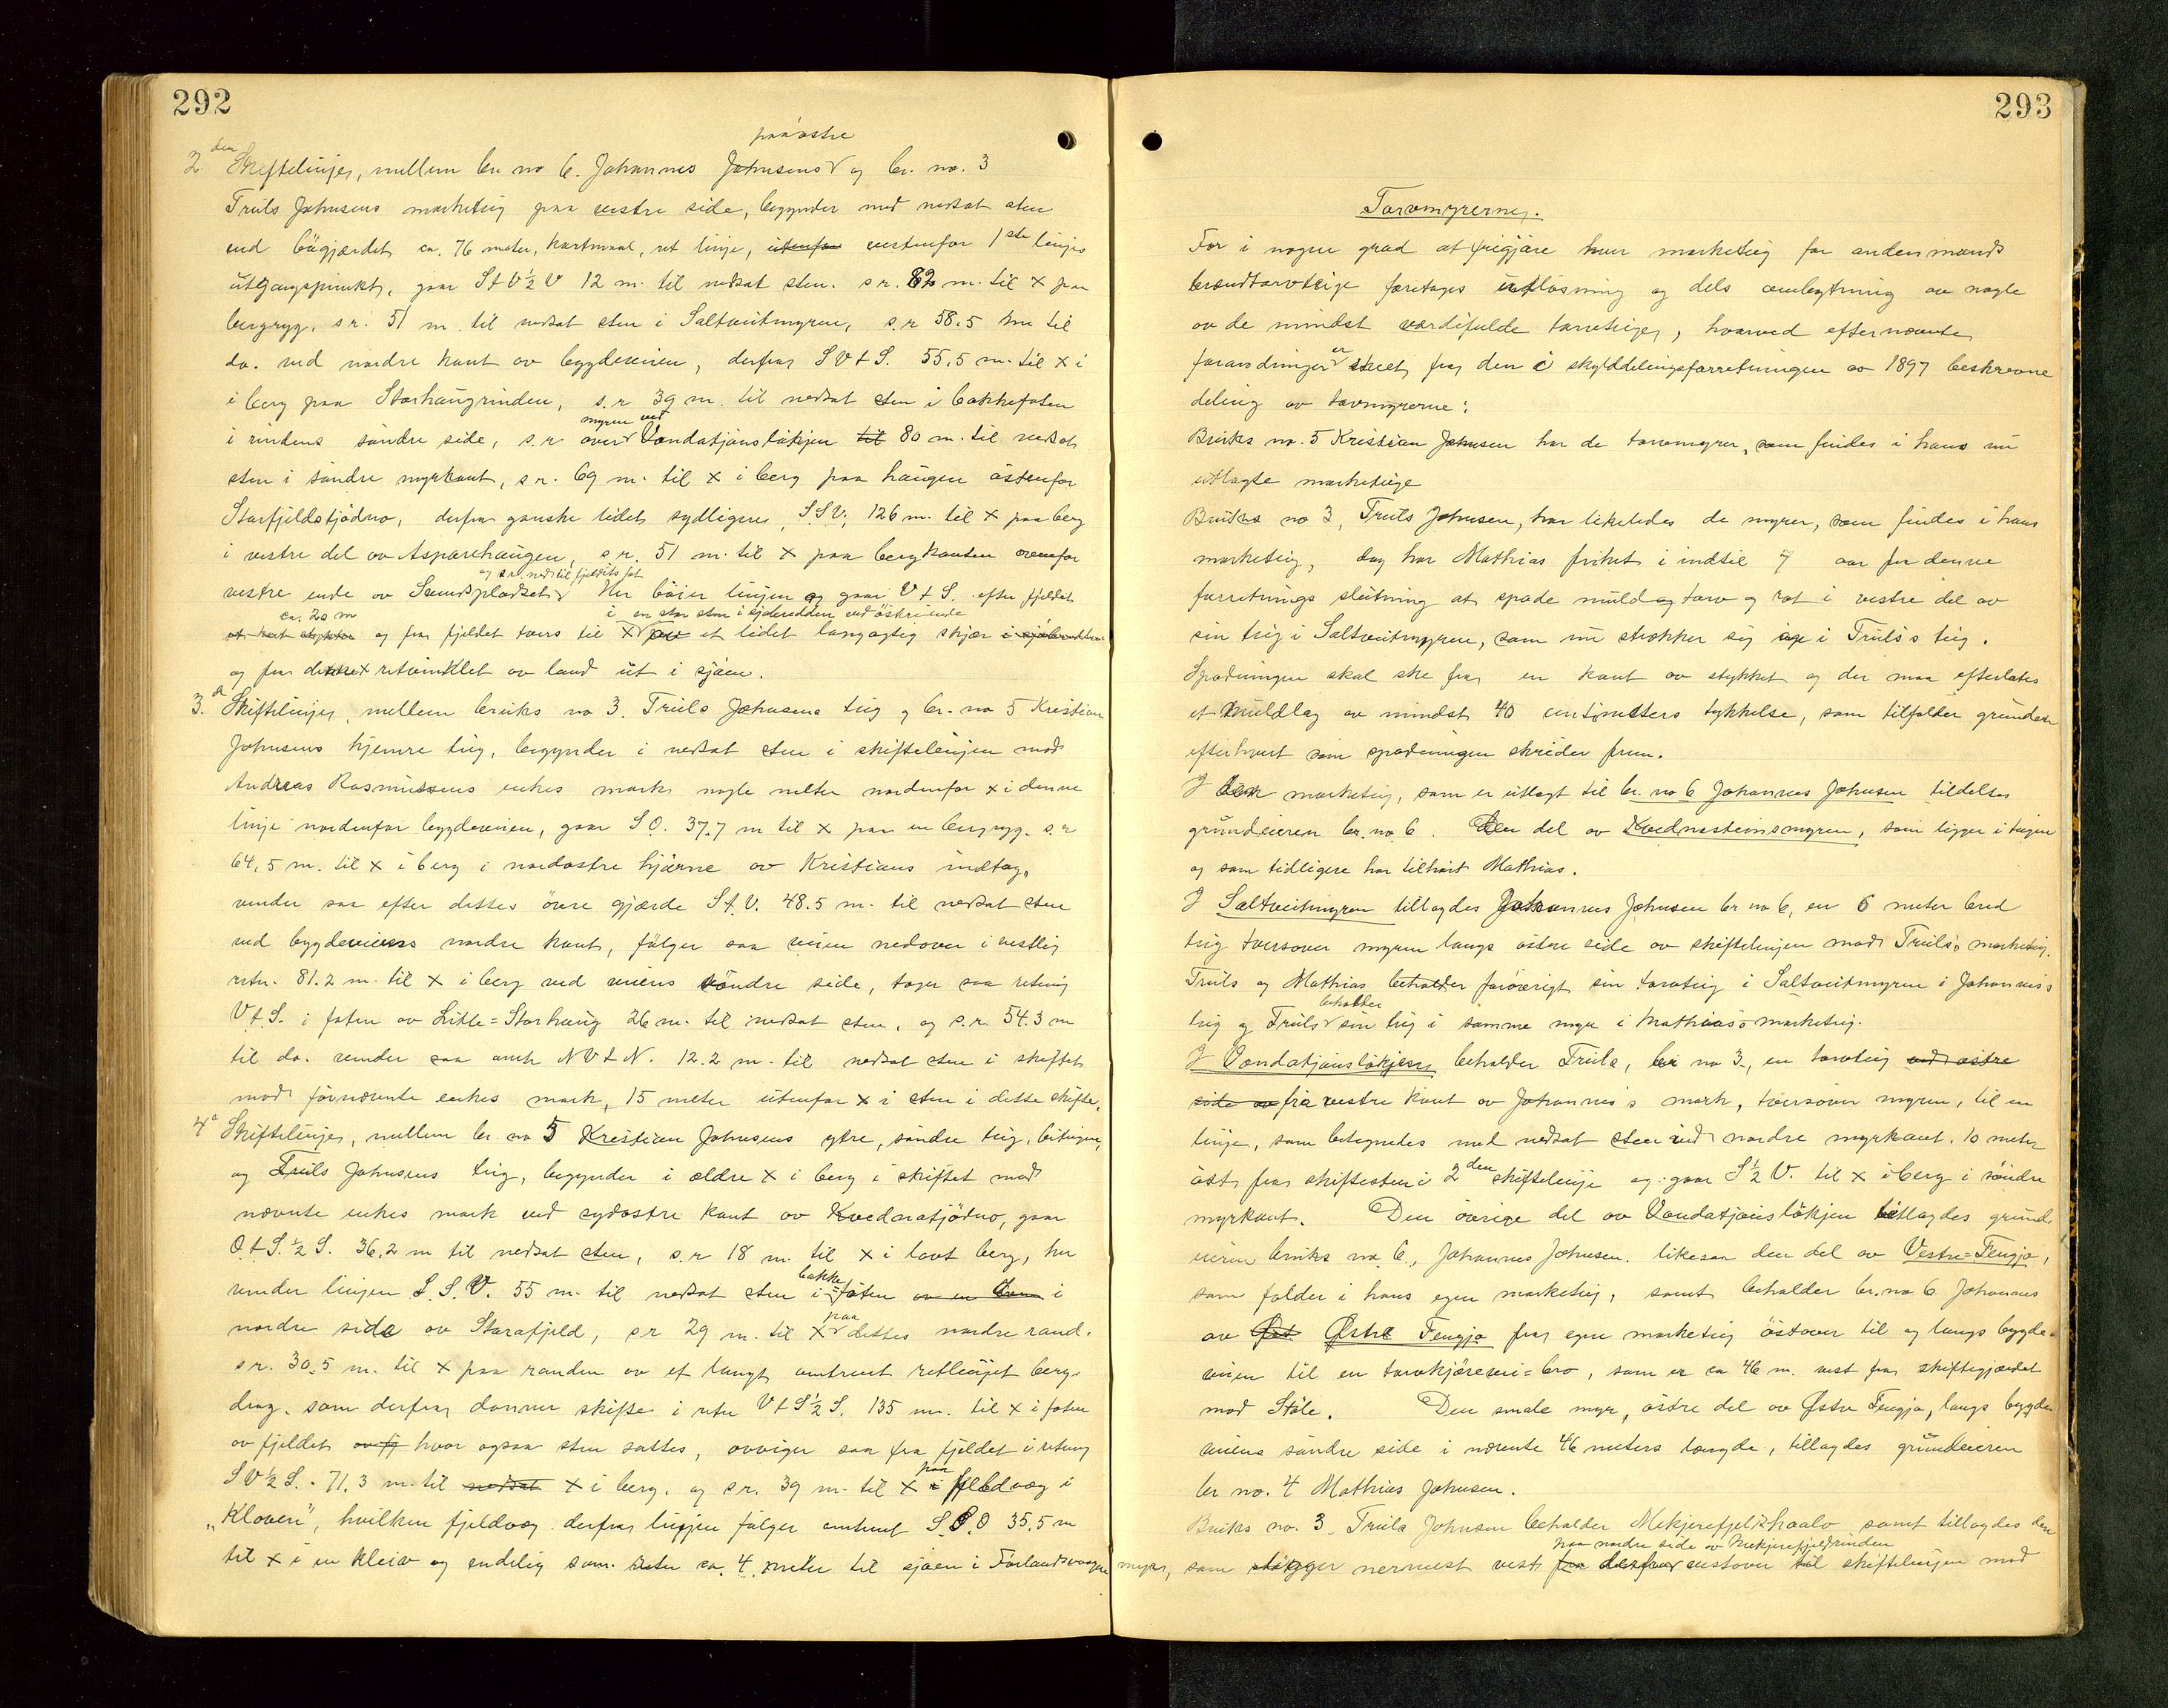 292
paa østre
2den Skiftelinje, mellem br. no 6. Johannes Johnsens og br. no. 3
Truls Johnsens markteig paa vestre side, begynder med nedsat sten
ved bøgjærdet ca. 76 meter, kartmaal, ret linje, utenfor vestenfor 1ste linjes
utgangspunkt, gaar St V ½ V 12 m. til nedsat sten. s r. 82 m. til x paa
bergryg. s r. 51 m. til nedsat sten i Saltveitmyren, s. r 58.5 m til
do. ved nordre kant av bygdeveien, derfra S V t S. 55.5 m. til x i
i berg paa Storhaugrinden, s. r 39 m. til nedsat sten i bakkefoten
myren ved
i rindens søndre side, s. r over Vondatjønsløkjen til 80 m. til nedsat
sten i søndre myrkant, s r. 69 m. til x i berg paa haugen østenfor
Storfjeldstjødno, derfra ganske lidet sydligere, S.S.V., 126 m. til x paa berg
i vestre del av Asparehaugen, s r. 51 m. til x paa bergkanten ovenfor
og s.r. ned til fjeldets fot
vestre ende av Sundspladset. Her bøier linjen og gaar V t S. efter fjeldet
ca. 20 m i en stor sten i sjøbredden ved østre ende
et kort stykke og fra fjeldet tvers til x paa et lidet langagtig skjær i sjøbredden
og fra dette x retvinklet av land ut i sjøen.
3.d Skiftelinje, mellem bruks no 3. Truls Johnsens teig og br. no 5 Kristian
Johnsens hjemre teig, begynder i nedsat sten i skiftelinjen mod
Andreas Rasmussens enkes mark nogle meter nordenfor x i denne
linje nordenfor bygdeveien, gaar S O. 37.7 m til x paa en bergryg. s. r
64.5 m. til x i berg i nordøstre hjørne av Kristians indtag,
vender saa efter dettes øvre gjærde S t. V. 48.5 m. til nedsat sten
ved bygdeveiens nordre kant, følger saa veien nedover i vestlig
retn. 81.2 m. til x i berg ved veiens søndre side, tager saa retning
V t. S. i foten av Litle=Storhaug 26 m. til nedsat sten, og s. r. 54.3 m
til do. vender saa omtr NV t N. 12.2 m. til nedsat sten i skiftet
mod førnævnte enkes mark, 15 meter utenfor x i sten i dette skifte,
4e Skiftelinje, mellem br. no 5 Kristian Johnsens ytre, søndre teig, biteigen,
og Truls Johnsens teig, begynder i ældre x i berg i skiftet mod
nævnte enkes mark ved sydøstre kant av Kvednatjødno, gaar
O. t S. ½ S. 36.2 m til nedsat sten, s. r 18 m. til x i lavt berg, her
bakke
vender linjen S. S. V. 55 m. til nedsat sten i =foten av en i
paa
nordre side av Starafjeld, s r 29 m. til x dettes nordre rand.
s r. 30.5 m. til x paa randen av et langt omtrent retlinjet berg-
drag, som derfra danner skifte i retn V t S ½ S. 135 m. til x i foten
av fjeldet av fj hvor ogsaa sten sattes, avviger saa fra fjeldet i retning
paa
S V ½ S. 71.3 m. til nedsat x i berg, og s r. 39 m. til x i fjeldvæg i
"Kloven", hvilken fjeldvæg derfra linjen følger omtrent S. S. O 35.5 m
til x i en kleiv og endelig sam. retn ca. 4 meter til sjøen i Førlandsvaagen
293
Torvmyrerne.
For i nogen grad at frigjøre hver markteig for andenmands
brændtorvteige foretages utløsning og dels ombytning av nogle
av de mindst værdifulde torvteiger, hvorved efternævnte
er
forandringer skeet fra den i skylddelingsforretningen av 1897 beskrevne
deling av torvmyrerne:
Bruks no. 5 Kristian Johnsen har de torvmyrer, som findes i hans nu
utlagte markteige
Bruks no 3, Truls Johnsen, har likeledes de myrer, som findes i hans
markteig, dog har Mathias frihet i indtil 7 aar fra denne
forretnings slutning at spade muld og torv og rot i vestre del av
sin teig i Saltveitmyren, som nu strækker sig ind i Truls's teig.
Spadningen skal ske fra en kant av stykket og der maa efterlates
et muldlag av mindst 40 centimeters tykkelse, som tilfalder grundeier
efterhvert som spadningen skrider frem.
I den markteig, som er utlagt til br. no 6 Johannes Johnsen tildeles
grundeieren br. no 6. Den del av Kvednasteinsmyren, som ligger i teigen
og som tidligere har tilhørt Mathias.
I Saltveitmyren tillagdes Johannes Johnsen br no 6, en 6 meter bred
teig tversover myren langs østre side av skiftelinjen mod Truls's markteig.
Truls og Mathias beholder forøvrigt sin torvteig i Saltveitmyren i Johannes's
beholder
teig og Truls sin teig i samme myr i Mathias's markteig.
I Vondatjønsløkjen beholder Truls, br no 3., en torvteig ved østre
side av fra vestre kant av Johannes's mark, tversover myren, til en
linje, som betegnedes med nedsat sten ved nordre myrkant. 10 meter
øst fra skiftesten i 2den skiftelinje og gaar S ½ V. til x i berg i søndre
myrkant. Den øvrige del av Vondatjønsløkjen tillagdes grund-
eieren bruks no 6., Johannes Johnsen. likesaa den del av Vestre=Fengja,
som falder i hans egen markteig, samt beholder br. no 6 Johannes
av Øst Østre Fengja fra egen markteig østover til og langs bygde-
veien til en torvkjørevei=bro, som er ca 46 m. vest fra skiftegjærdet
mod Støle. Den smale myr, østre del av Østre Fengja, langs bygde-
veiens søndre side i nævnte 46 meters længde, tillagdes grundeieren
br no. 4 Mathias Johnsen.
Bruks no. 3 Truls Johnsen beholder Mekjerefjeldshaalo samt tillagdes den
paa nordre side av Mekjerefjeldrinden
myr, som ligger nermest vest fra derfra vestover til skiftelinjen mod